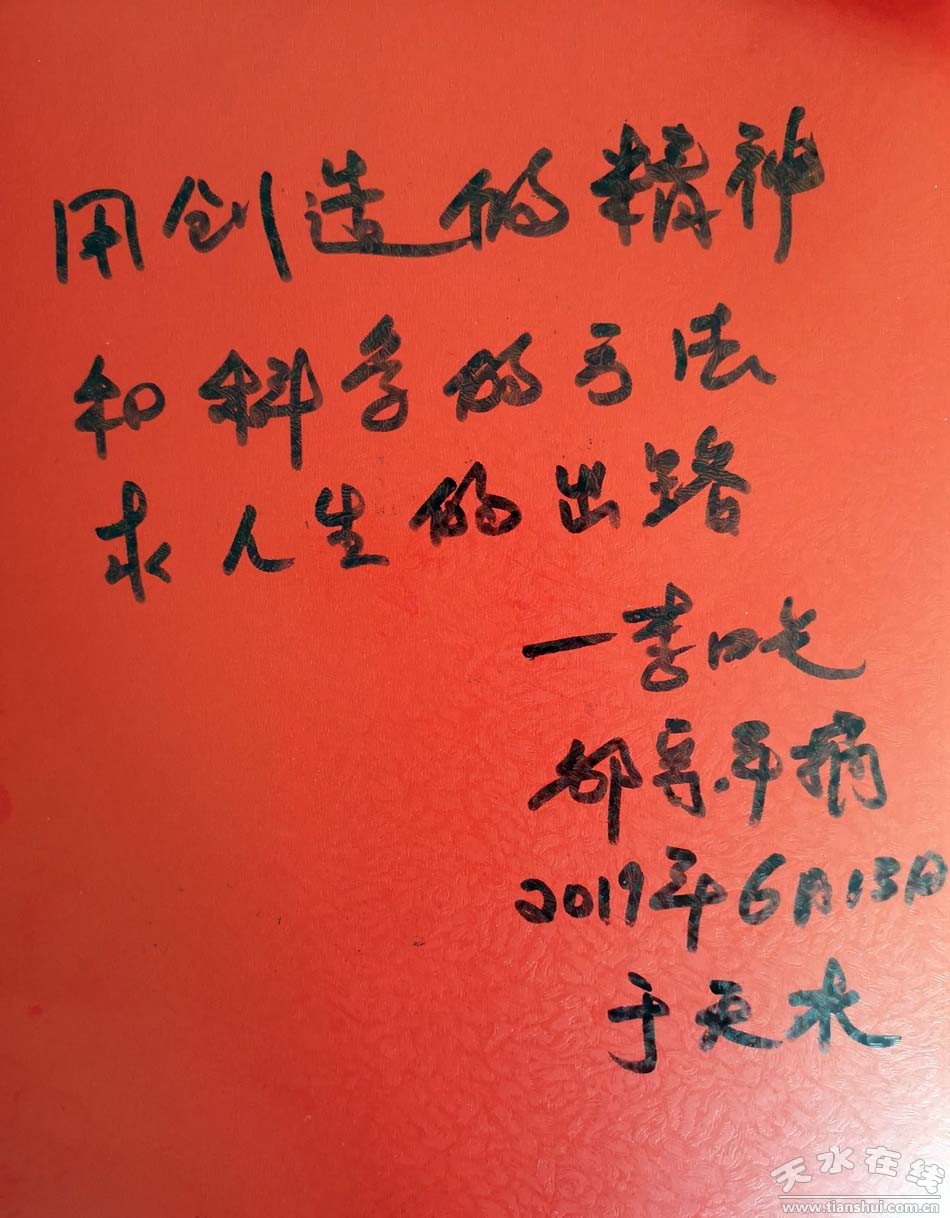 用创造的精神
和科学的方法
求人生的出路
—李四光
平摘
2019年6月13日
于天水
天水在线
www.tianshui.com.cn